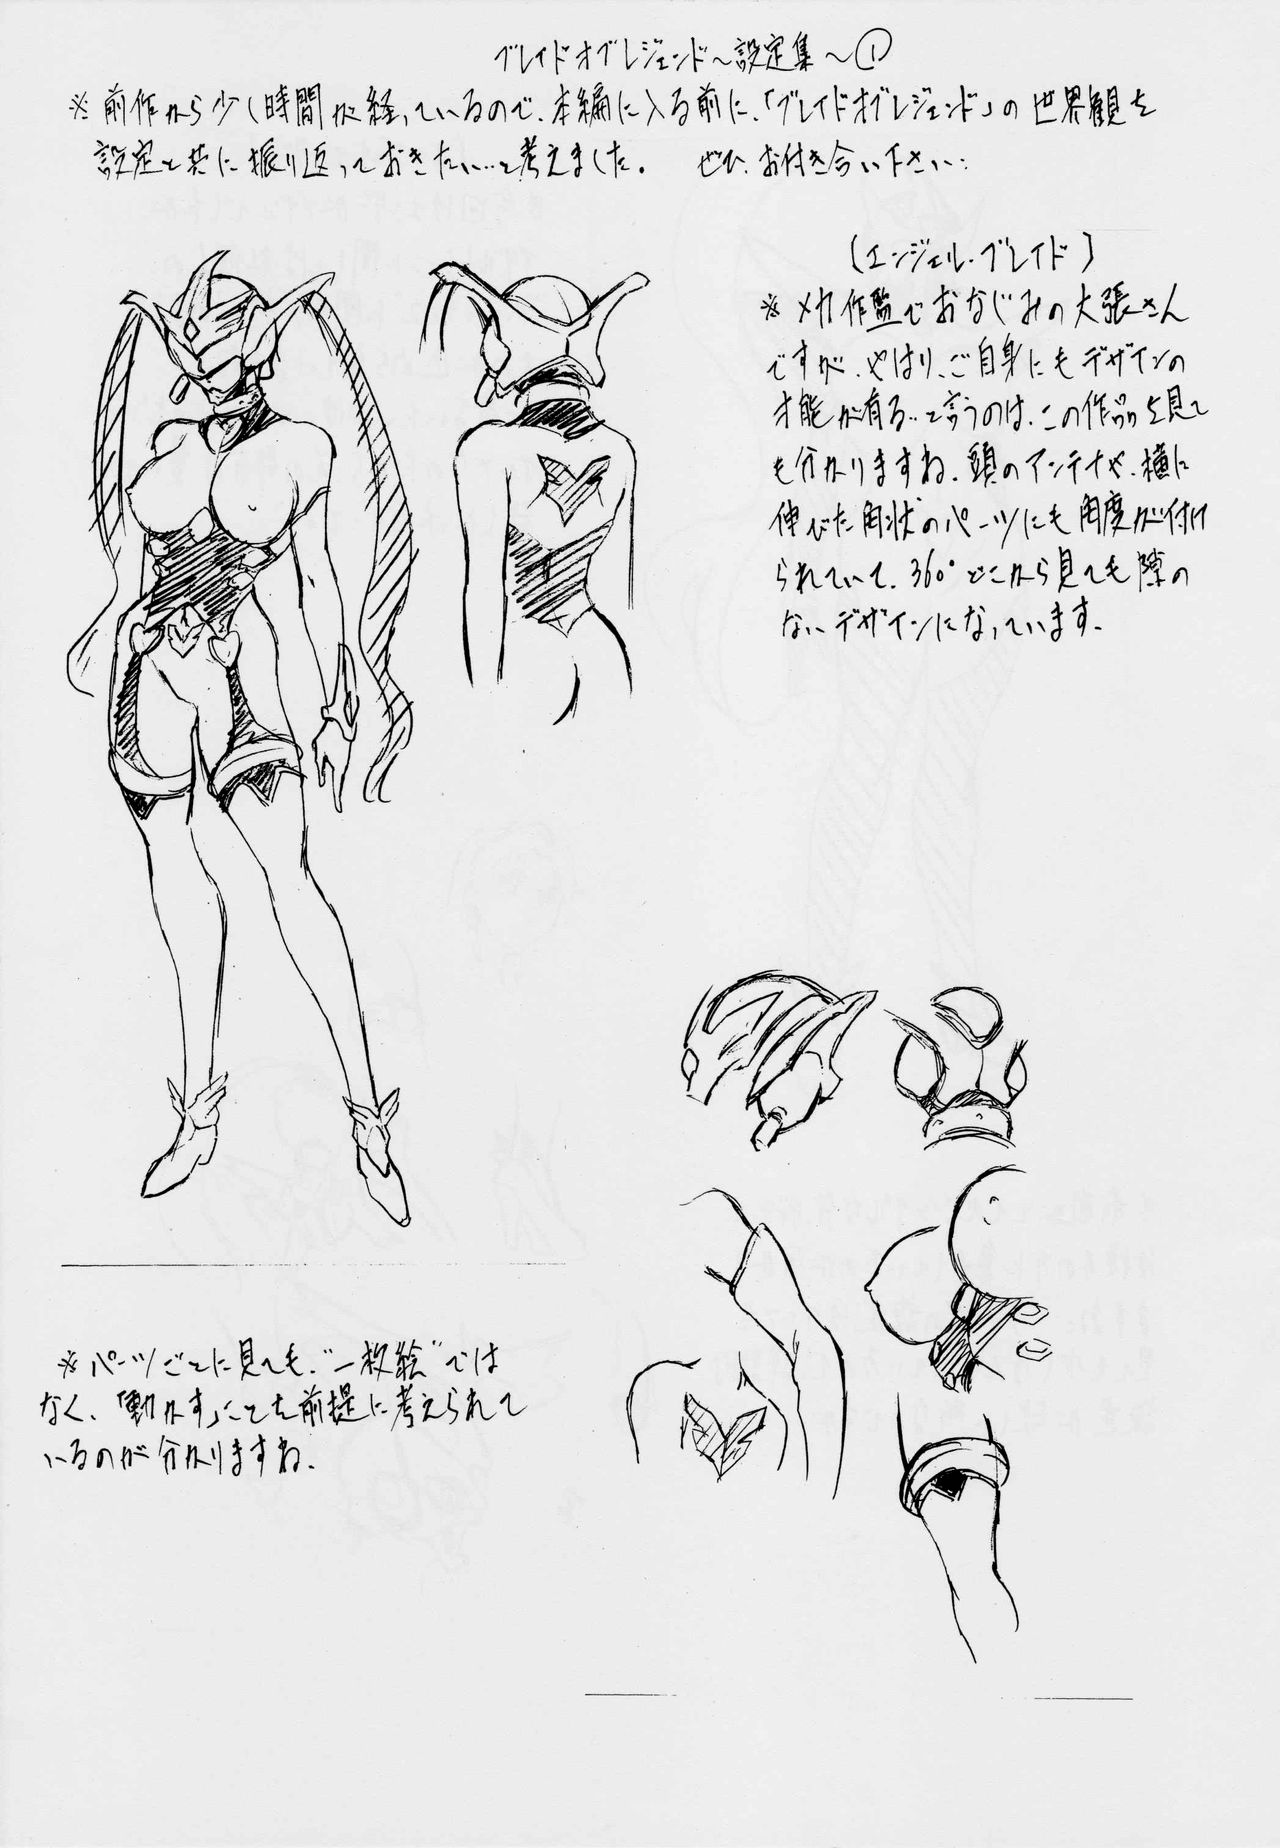 ブレイドオブレジェンド～設定集～①
※前作から少し時間が経っているので、本編に入る前に、「ブレイドオブレジェンド」の世界観を
設定と共に振り返っておきたい…と考えました。 ぜひ、お付き合い下さい:
(エンジェル・ブレイド)
※メカ作監でおなじみの大張さん
ですが、やはり、ご自身にもデザインの
才能が有る…と言うのは、この作品を見て
も分かりますね。頭のアンテナや、横に
伸びた角状のパーツにも角度が付け
られていて、360°どこから見ても隙の
ないデザインになっています。
※パーツごとに見ても、“一枚絵”では
なく、「動かす」ことを前提に考えられて
いるのが分かりますね。